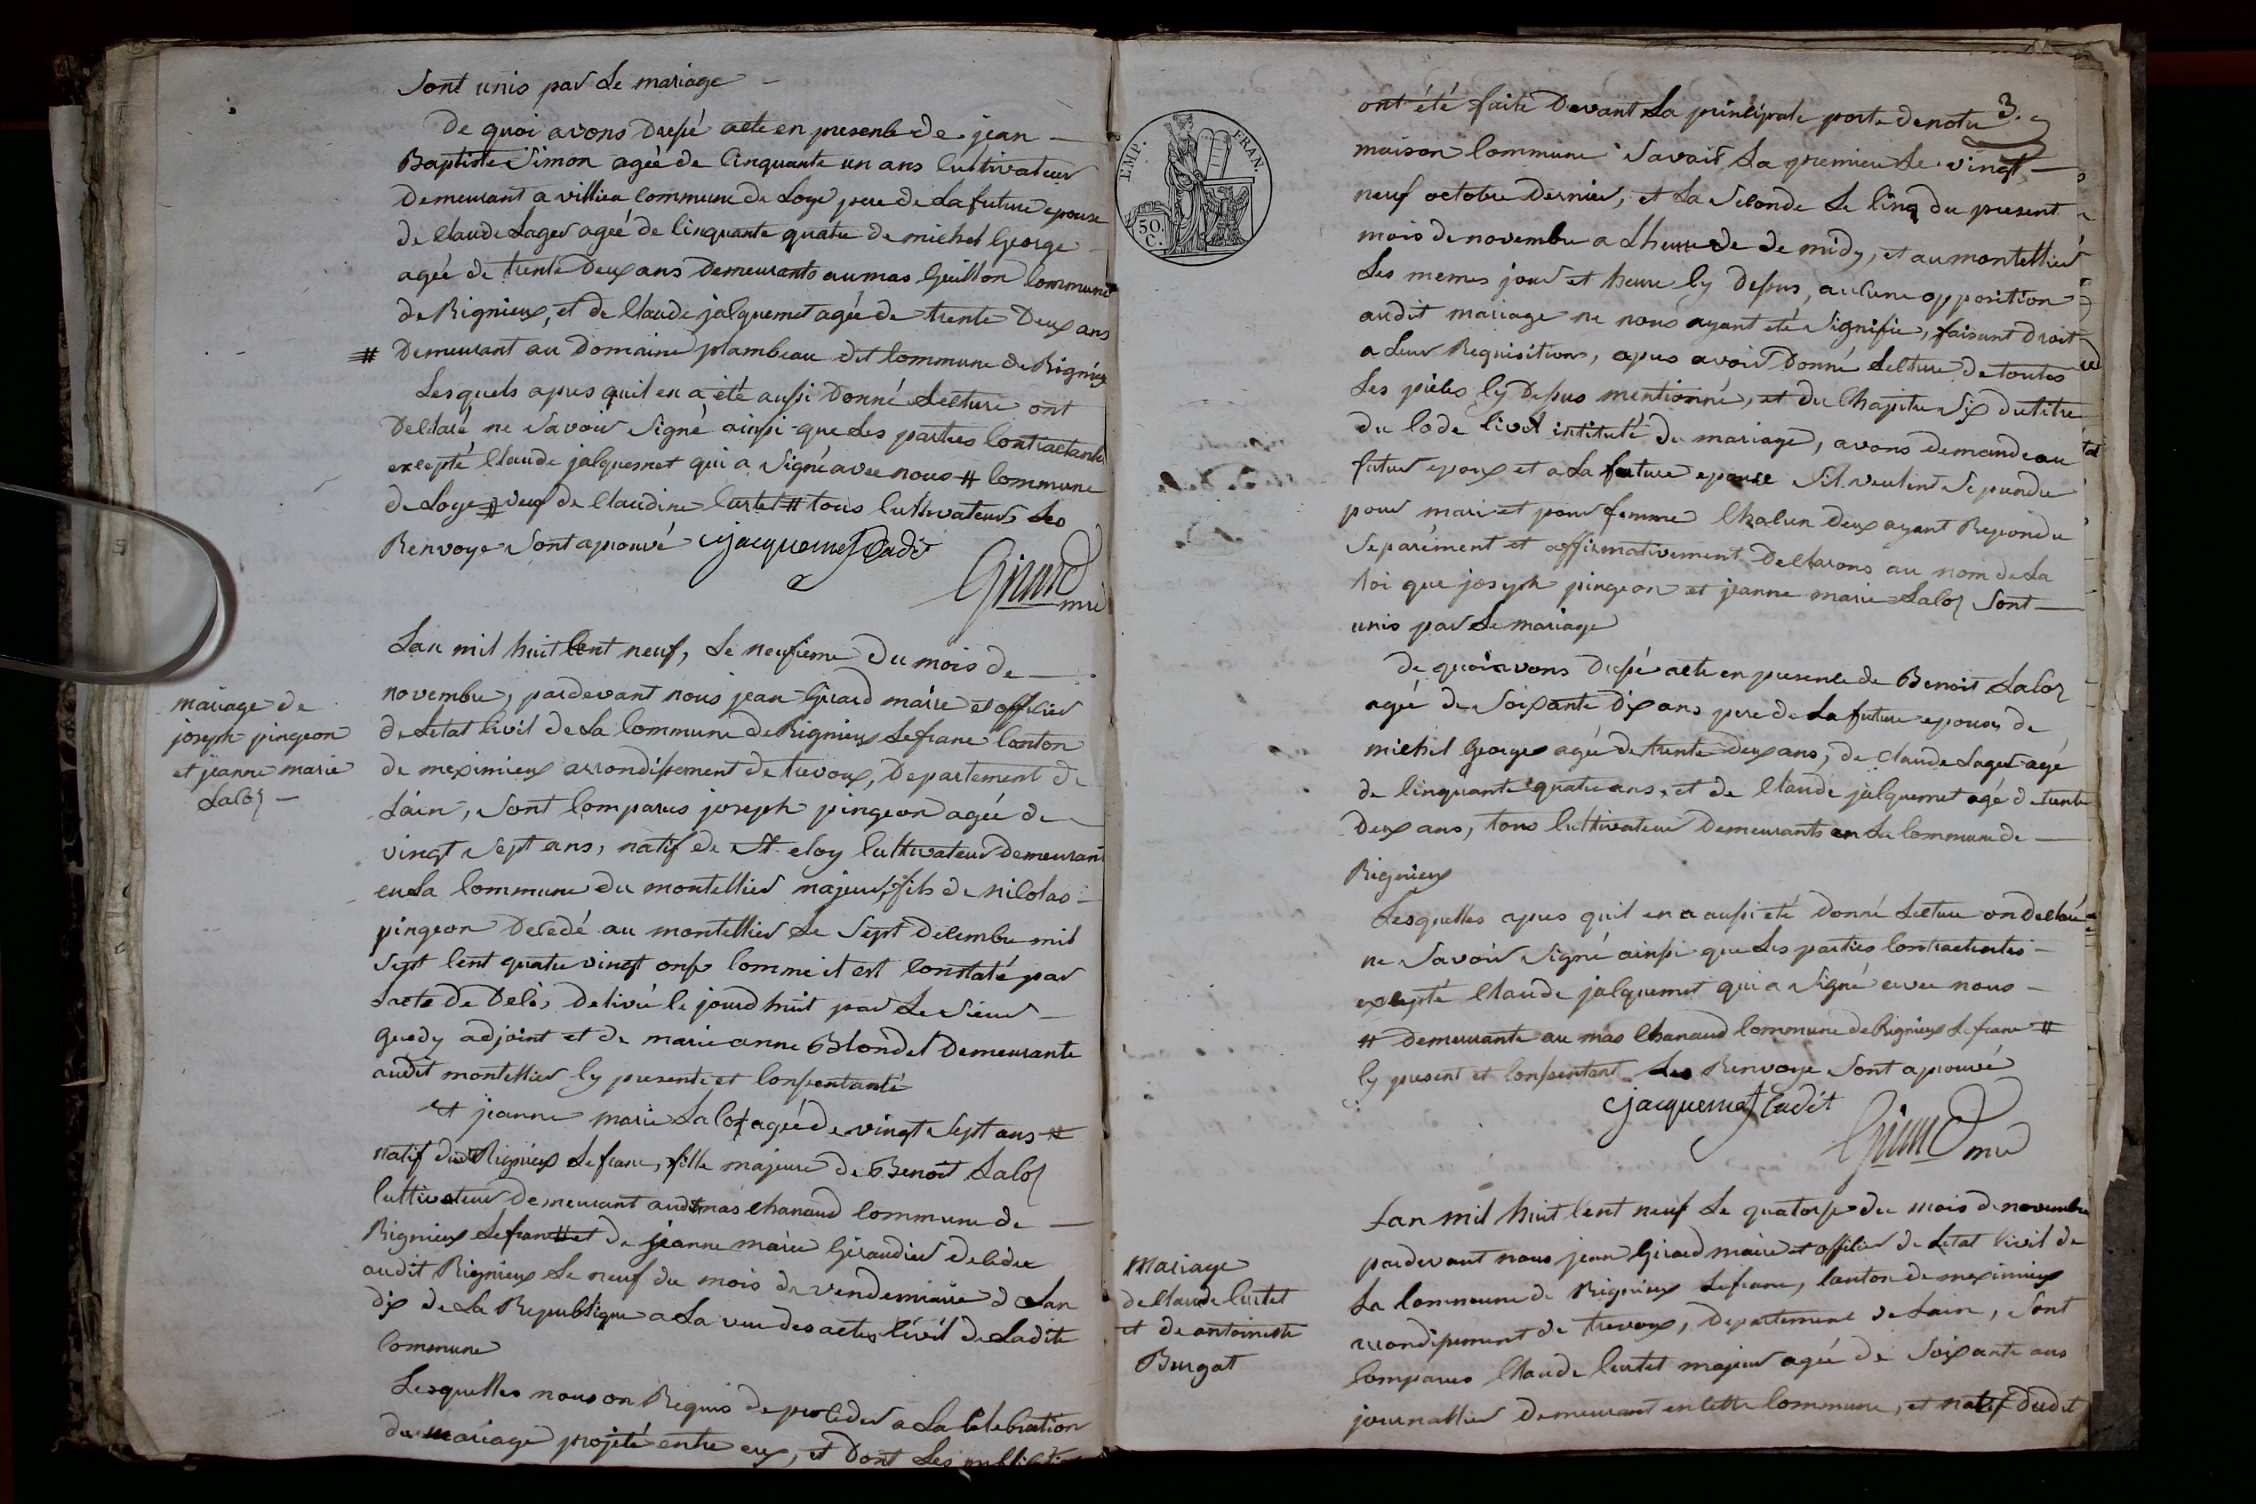 Sont unis par Le mariage
De quoi avons Dressé acte en presence de jean
Baptiste Simon agée de Cinquante un ans Cultivateur
Demeurant a villieu commune de Loye pere de La future epouse
de Claude Lager agée de Cinquante quatre de michel George
agée de trente Deux ans Demeurants au mas Guillon Commune
de Rignieux, et de Claude jalquemet agée de trente Deux ans
# Demeurant au Domaine plambeau dit Commune de Rignieux
Lesquels apres quil en a été aussi Donné Lecture ont
Declaré ne Savoir Signé ainsi que Les parties Contractante
excepté Claude jalquemet qui a Signé avec nous # Commune
de Loye # veuf de Claudine Curtet # tous Cultivateurs Les
Renvoye Sont aprouvé cjacquemet Cadit
Girard
mre
mariage de
joseph pingeon
et jeanne marie
Laloz
Lan mil huit Cent neuf, Le neufieme Du mois de
novembre, pardevant nous jean Girard maire et officier
de Letat Civil de La Commune de Rignieux Lefranc Canton
de meximieux arrondissement de trevoux, Departement de
Lain, Sont Comparus joseph pingeon agée de
vingt Sept ans, natif de St. eloy Cultivateur Demeurant
en La Commune du montellier majeur, fils de nicolas
pingeon Decedé au montellier Le Sept Decembre mil
Sept Cent quatre vingt onse Comme il est Constaté par
Lacte de Decés Delivré Ce jourdhuit par Le Sieur
guedy adjoint et de marie anne Blondel Demeurante
audit montellier Cy presente et Consentante
et jeanne marie Laloz agée de vingt Sept ans #
natif dudt Rignieux Lefranc, fille majeure de Benoit Laloz
Cultivateur Demeurant audt mas Chanaud Commune de
Rignieux Lefranc # et de jeanne marie Giraudier decedee
audit Rignieux Le neuf du mois de vendemiaire d Lan
dix de La Republique a La vue des actes Civil de Ladite
Commune
Lesquelles nous on Requis de proceder a La Celebration
du mariage projeté entre eux, et Dont Les publications
3.
ont été faite Devant La principale porte de notre
maison Commune Savoir, La premiere Le vingt
neuf octobre Dernier, et La Seconde Le Cinq du present
mois de novembre a Lheure de de midy, et au montellier
Les memes jour et heure Cy Dessus, aucune opposition
audit mariage ne nous ayant été Signifié, faisant Droit
a Leur Requisitions, apres avoir Donné Lecture de toutes
Les pieces Cy Dessus mentionné, et du Chapitre Six du titre
du Code Civil intitulé du mariage, avons demande au
futur epoux et a La future epouse Sil veulent Se prendre
pour mari et pour femme Chacun Deux ayant Repondu
Separement et affirmativement Declarons au nom de La
Loi que joseph pingeon et jeanne marie Laloz Sont
unis par Le mariage
De quoi avons Dressé acte en presence de Benoit Laloz
agée de Soixante Dix ans pere de La future epouse, de
michel George agée de trente deux ans, de Claude Lager agé
de Cinquante quatre ans, et de Claude jalquemet agé de trente
Deux ans, tous Cultivateur Demeurants en La Commune de
Rignieux
Lesquelles apres quil en a aussi été Donné Lecture on declaré
ne Savoir Signé ainsi que Les parties Contractantes
excepté Claude jalquemet qui a Signé avec nous
# Demeurante au mas Chanaud Commune de Rignieux Lefranc #
Cy present et Consentant Les Renvoye Sont aprouvé
cjacquemet Cadit
Girard mre
EMP. FRAN.
50. C.
Mariage
de Claude Curtet
et de antoinette
Burgat
Lan mil huit Cent neuf Le quatorse du mois de novembre
pardevant nous jean Girard maire et officier de Letat Civil de
La Commune de Rignieux Lefranc, Canton de meximieux
arrondissement de trevoux, Departement de Lain, Sont
Comparus Claude Curtet majeur agée de Soixante ans
journallier Demeurant en Cette Commune, et natif Dudit